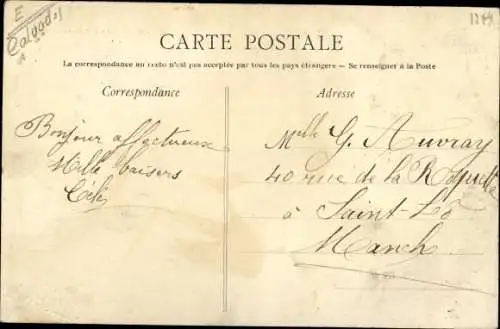 E
Calvados
CARTE POSTALE
La correspondance au recto n'est pas acceptée par tous les pays étrangers — Se renseigner à la Poste
Correspondance
Adresse
Bonjour affectueux
Mille baisers
Mlle G. Auvray
40 rue de la
à Saint-Lô
Manche